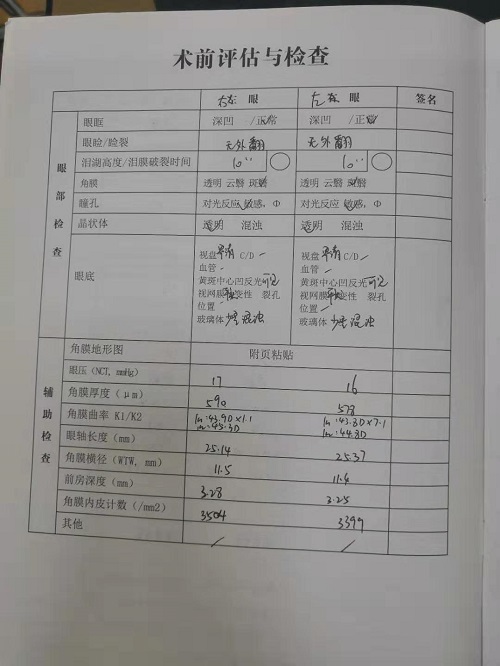 术前评估与检查
右 眼 左 眼 签名
眼部检查
眼眶 深凹 /正常 深凹 /正常
眼睑/睑裂 无外翻 无外翻
泪湖高度/泪膜破裂时间 10'' 10''
角膜 透明 云翳 斑翳 透明 云翳 斑翳
瞳孔 对光反应 敏感，Φ 对光反应 敏感，Φ
晶状体 透明 混浊 透明 混浊
眼底
视盘 C/D 视盘 C/D
血管 血管
黄斑中心凹反光 可见 黄斑中心凹反光 可见
视网膜 变性 裂孔 视网膜 变性 裂孔
位置 位置
玻璃体 混浊 玻璃体 混浊
辅助检查
角膜地形图 附页粘贴
眼压（NCT, mmHg） 17 16
角膜厚度（μm） 590 578
角膜曲率 K1/K2 43.9D×1.1 43.8D×7.1
45.3D 44.8D
眼轴长度（mm） 25.14 25.37
角膜横径（WTW, mm） 11.5 11.4
前房深度（mm） 3.28 3.25
角膜内皮计数（/mm2） 3504 3399
其他 / /